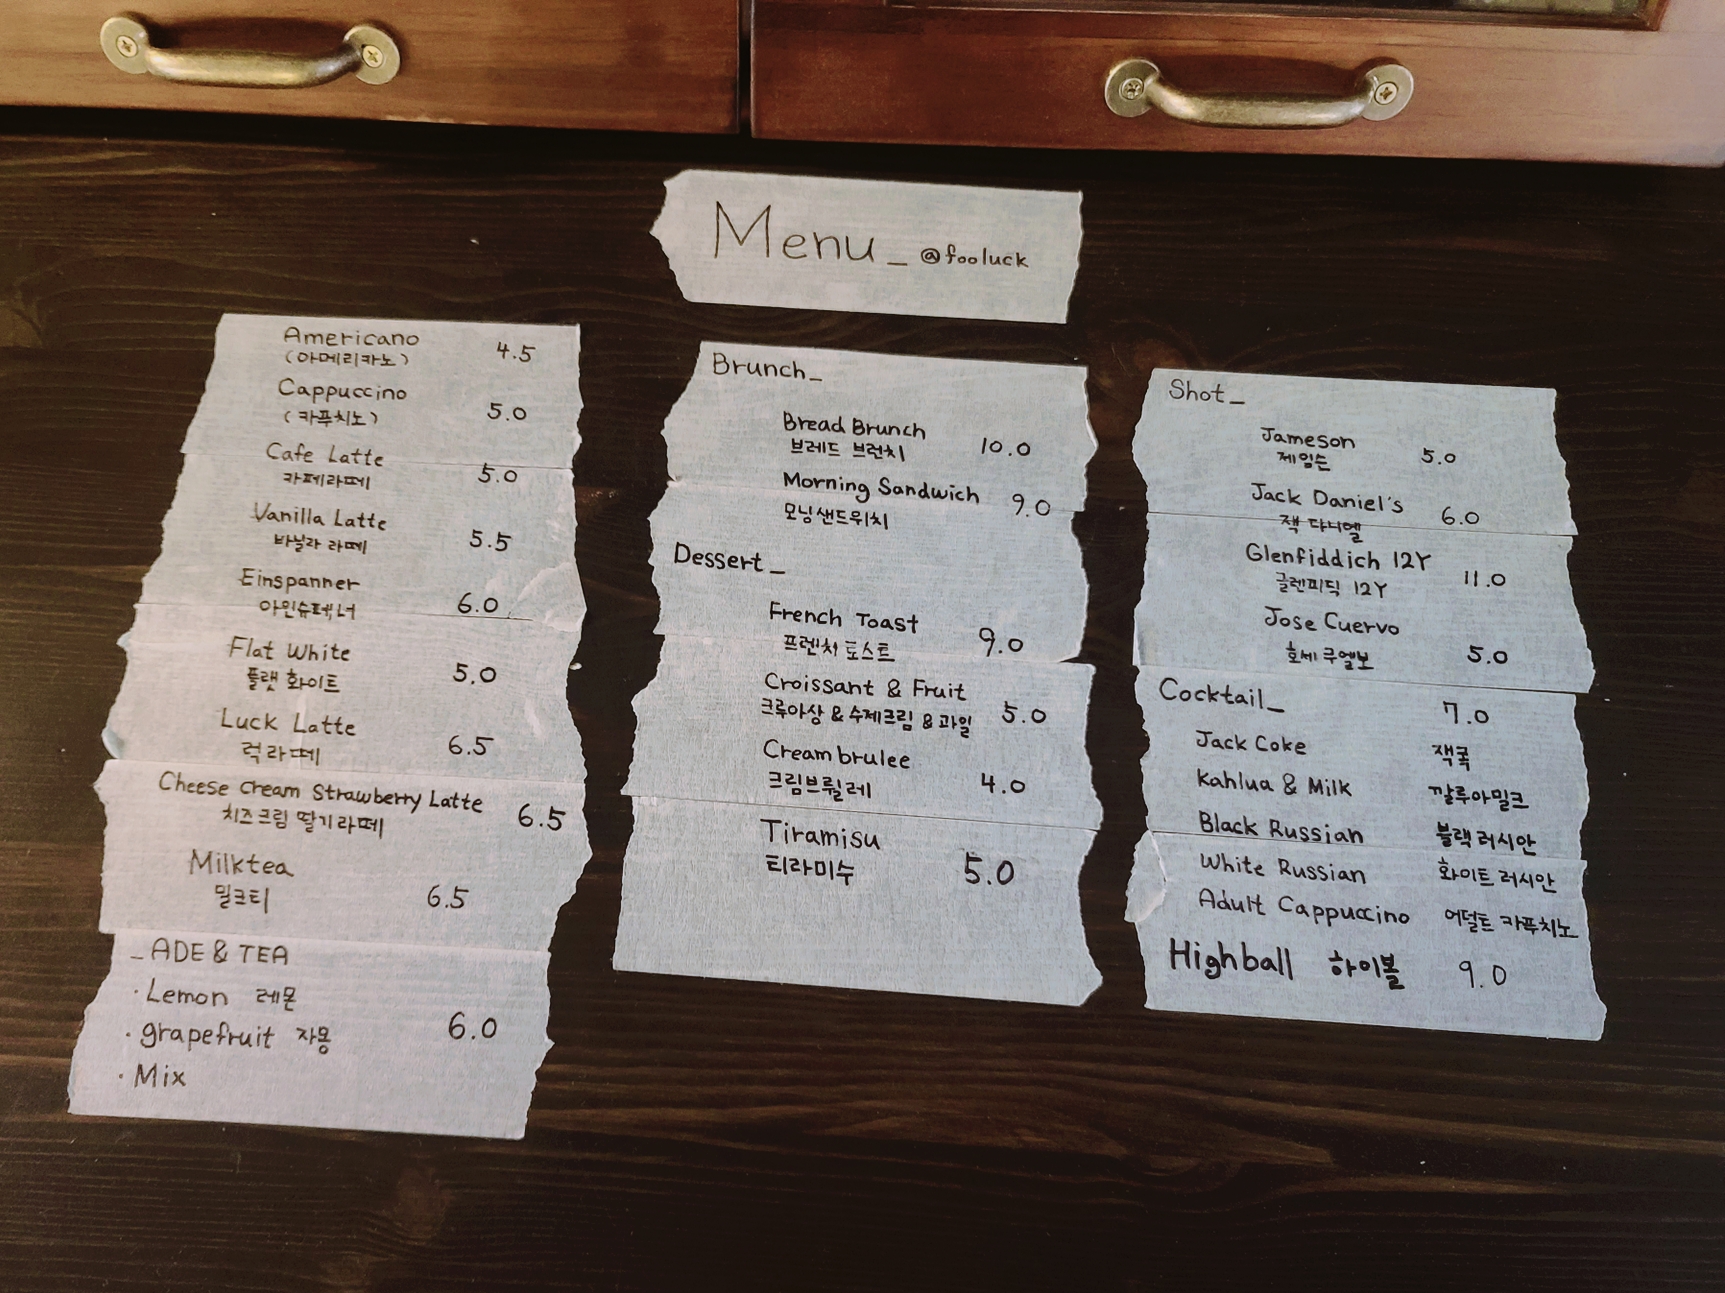 Menu_ @fooluck
Americano 4.5
(아메리카노)
Cappuccino 5.0
(카푸치노)
Cafe Latte 5.0
카페라떼
Vanilla Latte 5.5
바닐라 라떼
Einspanner 6.0
아인슈페너
Flat White 5.0
플랫 화이트
Luck Latte 6.5
럭라떼
Cheese Cream Strawberry Latte 6.5
치즈크림 딸기라떼
Milktea 6.5
밀크티
_ADE & TEA
·Lemon 레몬
·grapefruit 자몽 6.0
·Mix
Brunch_
Bread Brunch 10.0
브레드 브런치
Morning Sandwich 9.0
모닝샌드위치
Dessert_
French Toast 9.0
프렌치 토스트
Croissant & Fruit 5.0
크루아상 & 수제크림 & 과일
Cream brulee 4.0
크림브륄레
Tiramisu 5.0
티라미수
Shot_
Jameson 5.0
제임슨
Jack Daniel's 6.0
잭 다니엘
Glenfiddich 12Y 11.0
글렌피딕 12Y
Jose Cuervo 5.0
호세 쿠엘보
Cocktail_ 7.0
Jack Coke 잭콕
Kahlua & Milk 깔루아밀크
Black Russian 블랙러시안
White Russian 화이트러시안
Adult Cappuccino 어덜트 카푸치노
Highball 하이볼 9.0